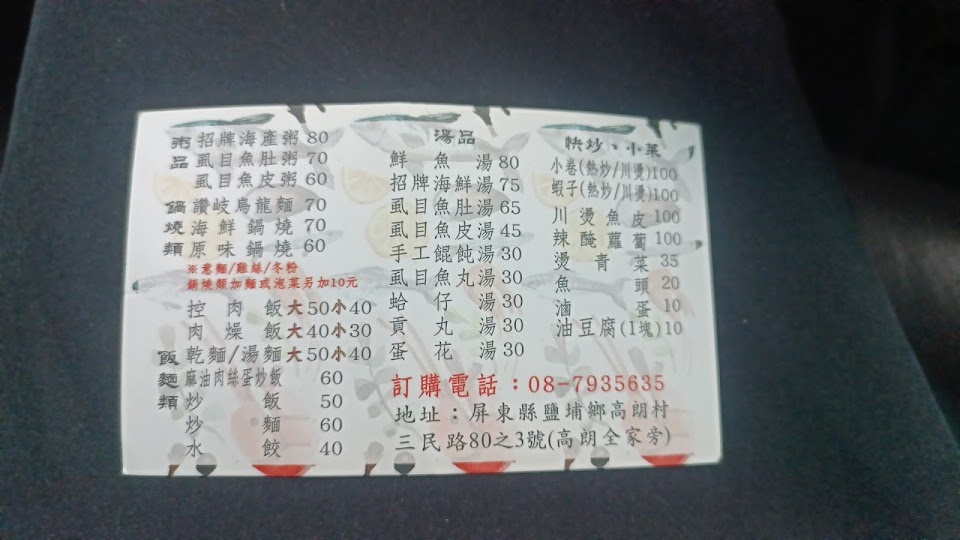 粥品
招牌海產粥 80
虱目魚肚粥 70
虱目魚皮粥 60
鍋燒類
讚岐烏龍麵 70
海鮮鍋燒 70
原味鍋燒 60
※意麵/雞絲/冬粉
鍋燒類加麵或泡菜另加10元
飯麵類
控肉飯 大50小40
肉燥飯 大40小30
乾麵/湯麵 大50小40
麻油肉絲蛋炒飯 60
炒飯 50
炒麵 60
水餃 40
湯品
鮮魚湯 80
招牌海鮮湯 75
虱目魚肚湯 65
虱目魚皮湯 45
手工餛飩湯 30
虱目魚丸湯 30
蛤仔湯 30
貢丸湯 30
蛋花湯 30
快炒、小菜
小卷(熱炒/川燙)100
蝦子(熱炒/川燙)100
川燙魚皮 100
辣醃蘿蔔 100
燙青菜 35
魚頭 20
滷蛋 10
油豆腐(1塊)10
訂購電話：08-7935635
地址：屏東縣鹽埔鄉高朗村
三民路80之3號(高朗全家旁)